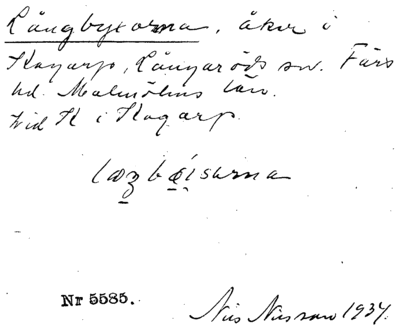 Långbyxorna, åker i
Skogarp, Långaröds sn. Färs
hd. Malmöhus län.
vid K i Skogarp.
Nr 5585.
Nils Nilsson 1934.